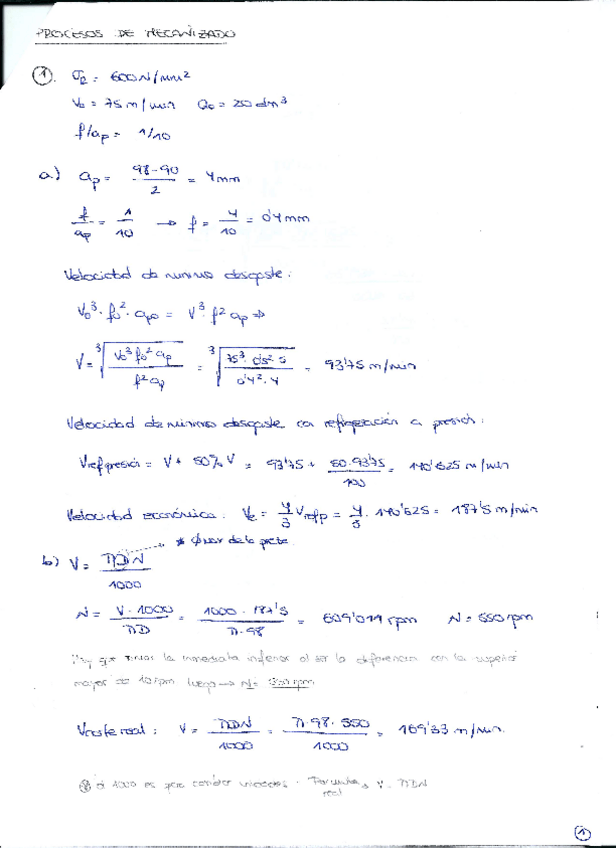 PROCESOS DE MECANIZADO
1. σR = 600 N/mm²
V₀ = 75 m/min Q₀ = 20 dm³
f/ap = 1/10
a) ap = (98-90)/2 = 4 mm
f/ap = 1/10 → f = 4/10 = 0'4 mm
Velocidad de mínimo desgaste:
V₀³ · f₀² · ap₀ = V³ · f² ap ⇒
V = ∛(V₀³ f₀² ap / f² ap) = ∛(75³ · 0'5² · 5 / 0'4² · 4) = 93'75 m/min
Velocidad de mínimo desgaste con refrigeración a presión:
Vref presión = V + 50% V = 93'75 + (50 · 93'75)/100 = 140'625 m/min
Velocidad económica: Ve = 4/3 Vrefp = 4/3 · 140'625 = 187'5 m/min
* ϕ mar de la pieza
b) V = πDN/1000
N = (V · 1000)/(πD) = (1000 · 187'5)/(π · 98) = 609'011 rpm N = 550 rpm
Hay que tomar la inmediata inferior al ser la diferencia con la superior
mayor 10 rpm. luego → N = 550 rpm
Vcorte real: V = πDN/1000 = (π · 98 · 550)/1000 = 169'33 m/min.
el 1000 es para unidades. Formula real V = πDN
1